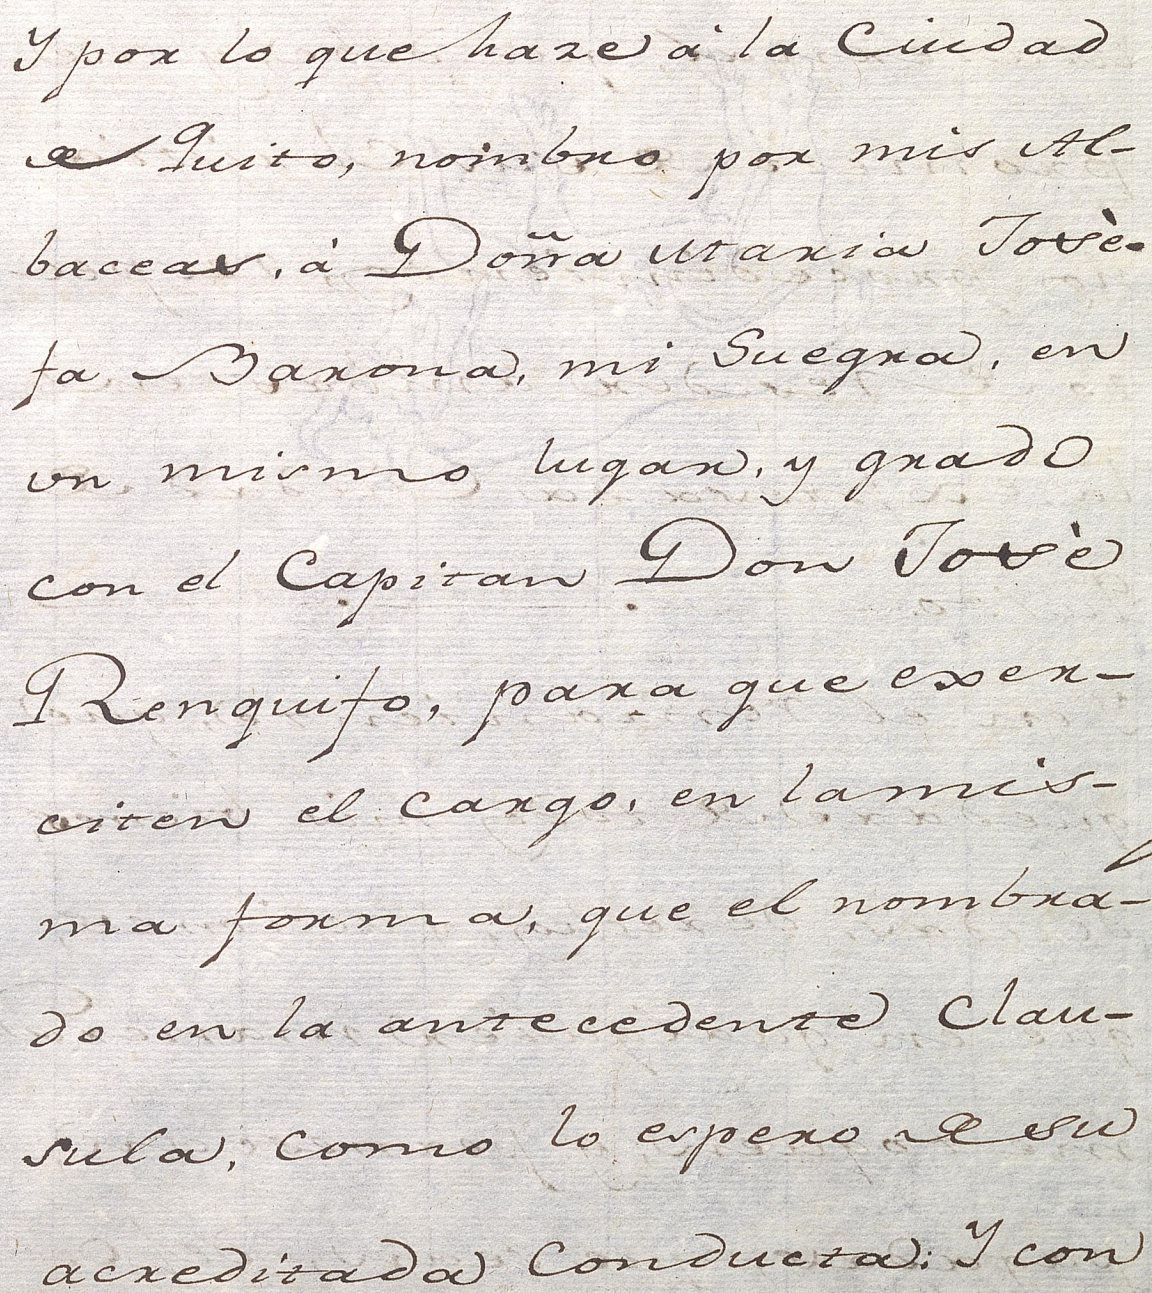 Y por lo que haze à la Ciudad
de Quito, nombro por mis Al-
baceas, à Doña Maria Josè-
fa Barona, mi Suegra, en
un mismo lugar, y grado
con el Capitan Don Josè
Renquifo, para que exer-
citen el cargo, en la mis-
ma forma, que el nombra-
do en la antecedente Clau-
sula, como lo espero, de su
acreditada Conducta: Y con